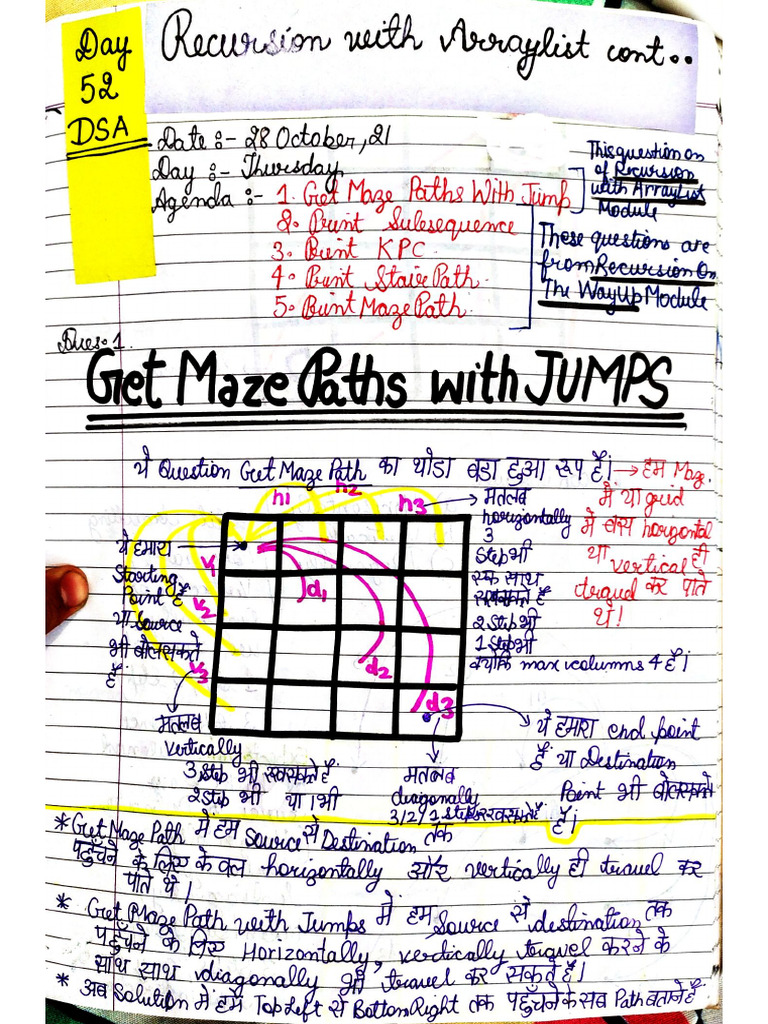 Day
52
DSA
Recursion with Arraylist cont..
Date :- 28 October, 21
Day :- Thursday
Agenda :- 1. Get Maze Paths With Jump
2. Print Subsequence
3. Print KPC
4. Print Stair Path
5. Print Maze Path
This question on
of Recursion
with ArrayList
Module
These questions are
from Recursion On
The Way Up Module
Ques. 1
Get Maze Paths with JUMPS
ये Question Get Maze Path का थोडा बडा हुआ रूप है। → हम Maze
में या grid
में बस horizontal
या vertical ही
travel कर पाते
थे!
h1 h2 h3
v1
v2
v3
d1
d2
d3
ये हमारा
Starting
Point है
या source
भी बोल सकते
हैं
मतलब
horizontally
3
step भी
एक साथ
रख सकते हैं
2 step भी
1 step भी
क्योंकि max columns 4 है।
मतलब
vertically
3 step भी रख सकते हैं
2 step भी या 1 भी
मतलब
diagonally
3/2/1 step रख सकते हैं
ये हमारा end point
है या Destination
Point भी बोल सकते
हैं।
* Get Maze Path में हम Source से Destination तक
पहुँचने के लिए केवल horizontally और vertically ही travel कर
पाते थे।
* Get Maze Path with Jumps में हम Source से destination तक
पहुँचने के लिए Horizontally, vertically travel करने के
साथ साथ diagonally भी travel कर सकते हैं।
* अब Solution में हम Top Left से Bottom Right तक पहुँचने के सब Path बताने हैं